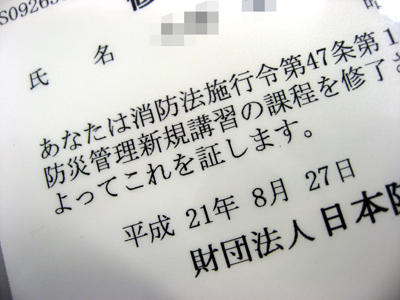 S09265
氏名
あなたは消防法施行令第47条第1
防災管理新規講習の課程を修了さ
よってこれを証します。
平成 21年 8月 27日
財団法人日本防